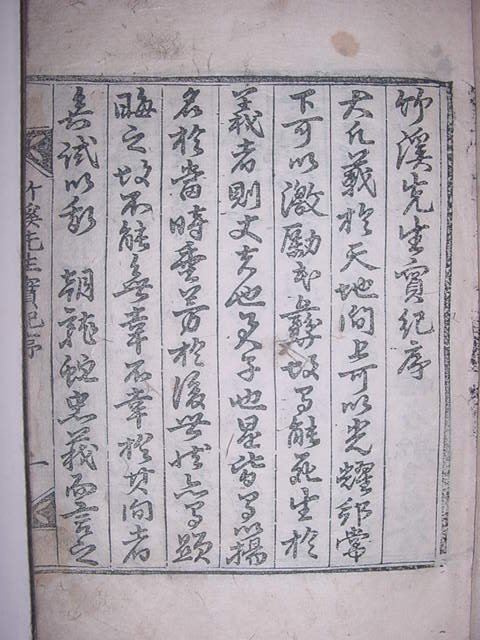 竹溪先生實紀序
大凡義於天地間上可以光耀邦常
下可以激勵民彝故有能死生於
義者則丈夫也君子也是皆有以揚
名於當時垂芳於後世然亦有顯
晦之故不能無幸不幸於其間者
矣試以我 朝龍蛇忠義而言之
竹溪先生實紀序 一